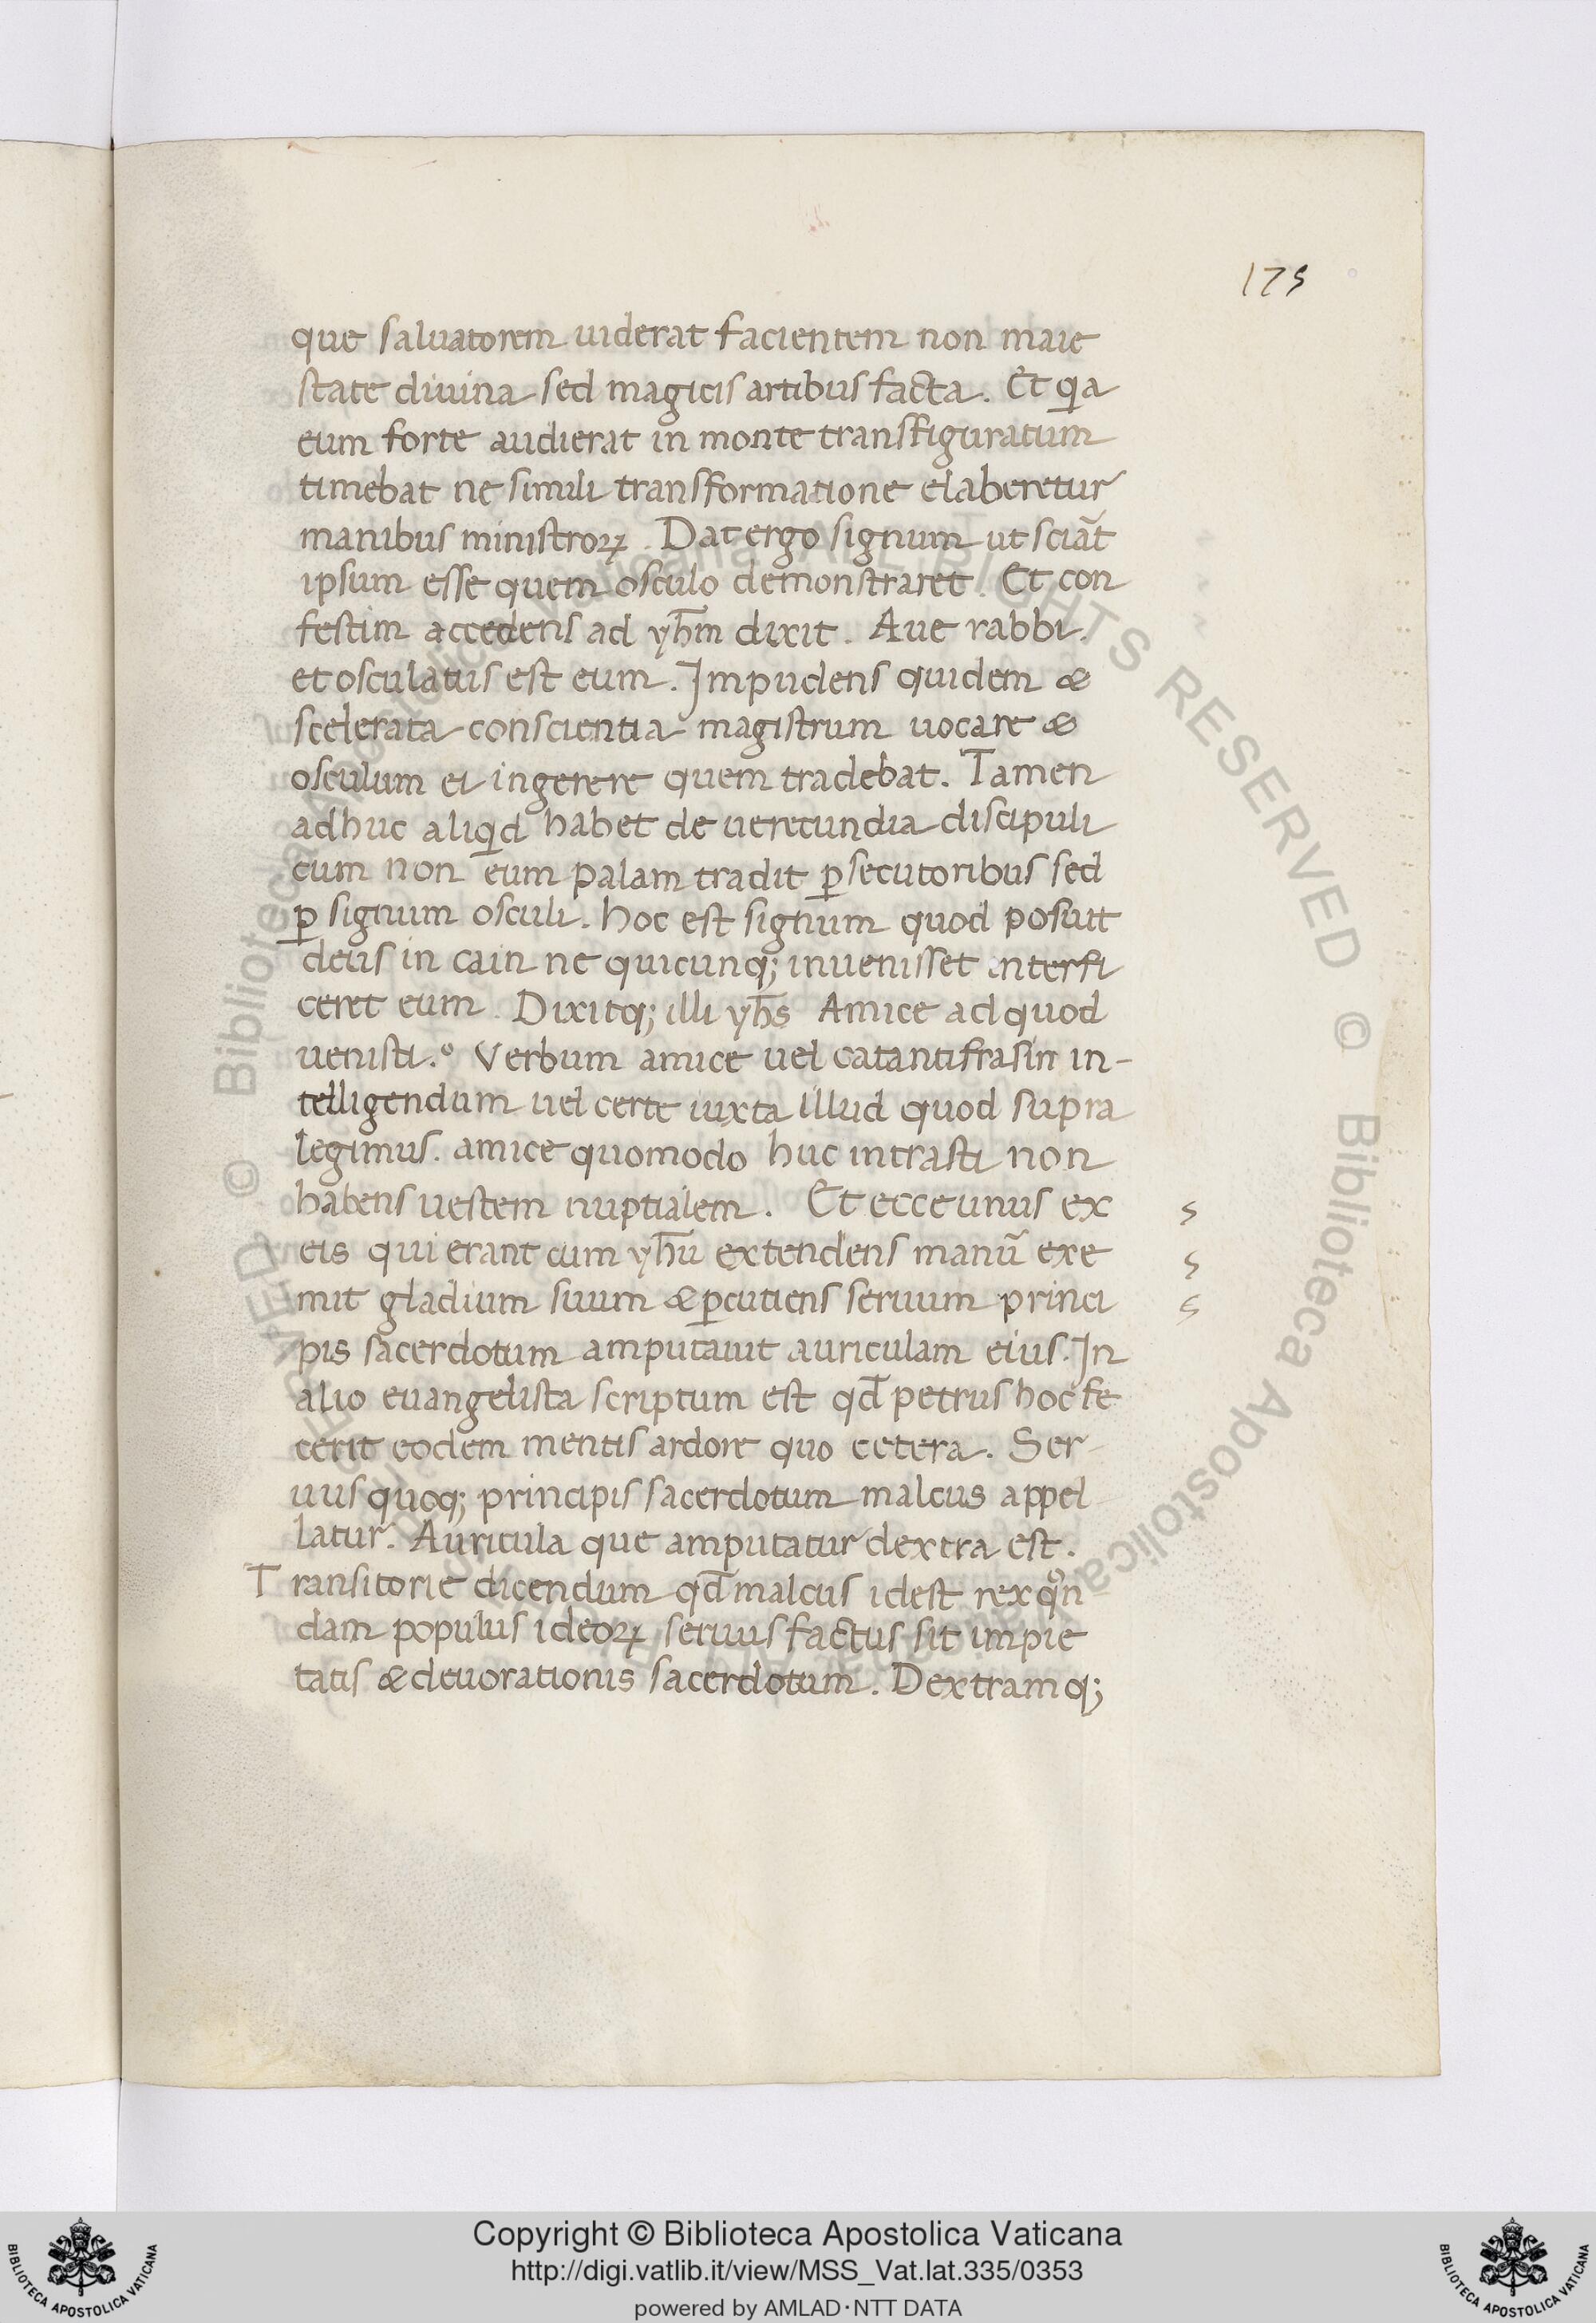 175
que saluatorem uiderat facientem non maie
state diuina sed magicis artibus facta. Et qa
eum forte audierat in monte transfiguratum
timebat ne simili transformatione elaberetur
manibus ministroꝝ. Dat ergo signum ut sciāt
ipsum esse quem osculo demonstraret. Et con
festim accedens ad yh̄m dixit. Aue rabbi.
et osculatus est eum. Impudens quidem &
scelerata conscientia magistrum uocare &
osculum ei ingerere quem tradebat. Tamen
adhuc aliqd habet de uerecundia discipuli
cum non eum palam tradit ꝑsecutoribus sed
ꝑ signum osculi. hoc est signum quod posuit
deus in cain ne quicunq; inuenisset interfi
ceret eum. Dixitq; illi yh̄s Amice ad quod
uenisti.° Verbum amice uel catantifrasin in-
telligendum uel certe iuxta illud quod supra
legimus. amice quomodo huc intrasti non
habens uestem nuptialem. Et ecce unus ex
eis qui erant cum yh̄u extendens manū exe
mit gladium suum & ꝑcutiens seruum princi
pis sacerdotum amputauit auriculam eius. In
alio euangelista scriptum est qd̄ petrus hoc fe
cerit eodem mentis ardore quo cetera. Ser
uus quoq; principis sacerdotum malcus appel
latur. Auricula que amputatur dextra est.
Transitorie dicendum qd̄ malcus idest rex qͦn
dam populus ideoꝝ seruus factus sit impie
tatis & deuorationis sacerdotum. Dextramq;
s
s
s
© Biblioteca Apostolica Vaticana ALL RIGHTS RESERVED
© Biblioteca Apostolica Vaticana
Copyright © Biblioteca Apostolica Vaticana
http://digi.vatlib.it/view/MSS_Vat.lat.335/0353
powered by AMLAD·NTT DATA
BIBLIOTECA APOSTOLICA VATICANA
BIBLIOTECA APOSTOLICA VATICANA